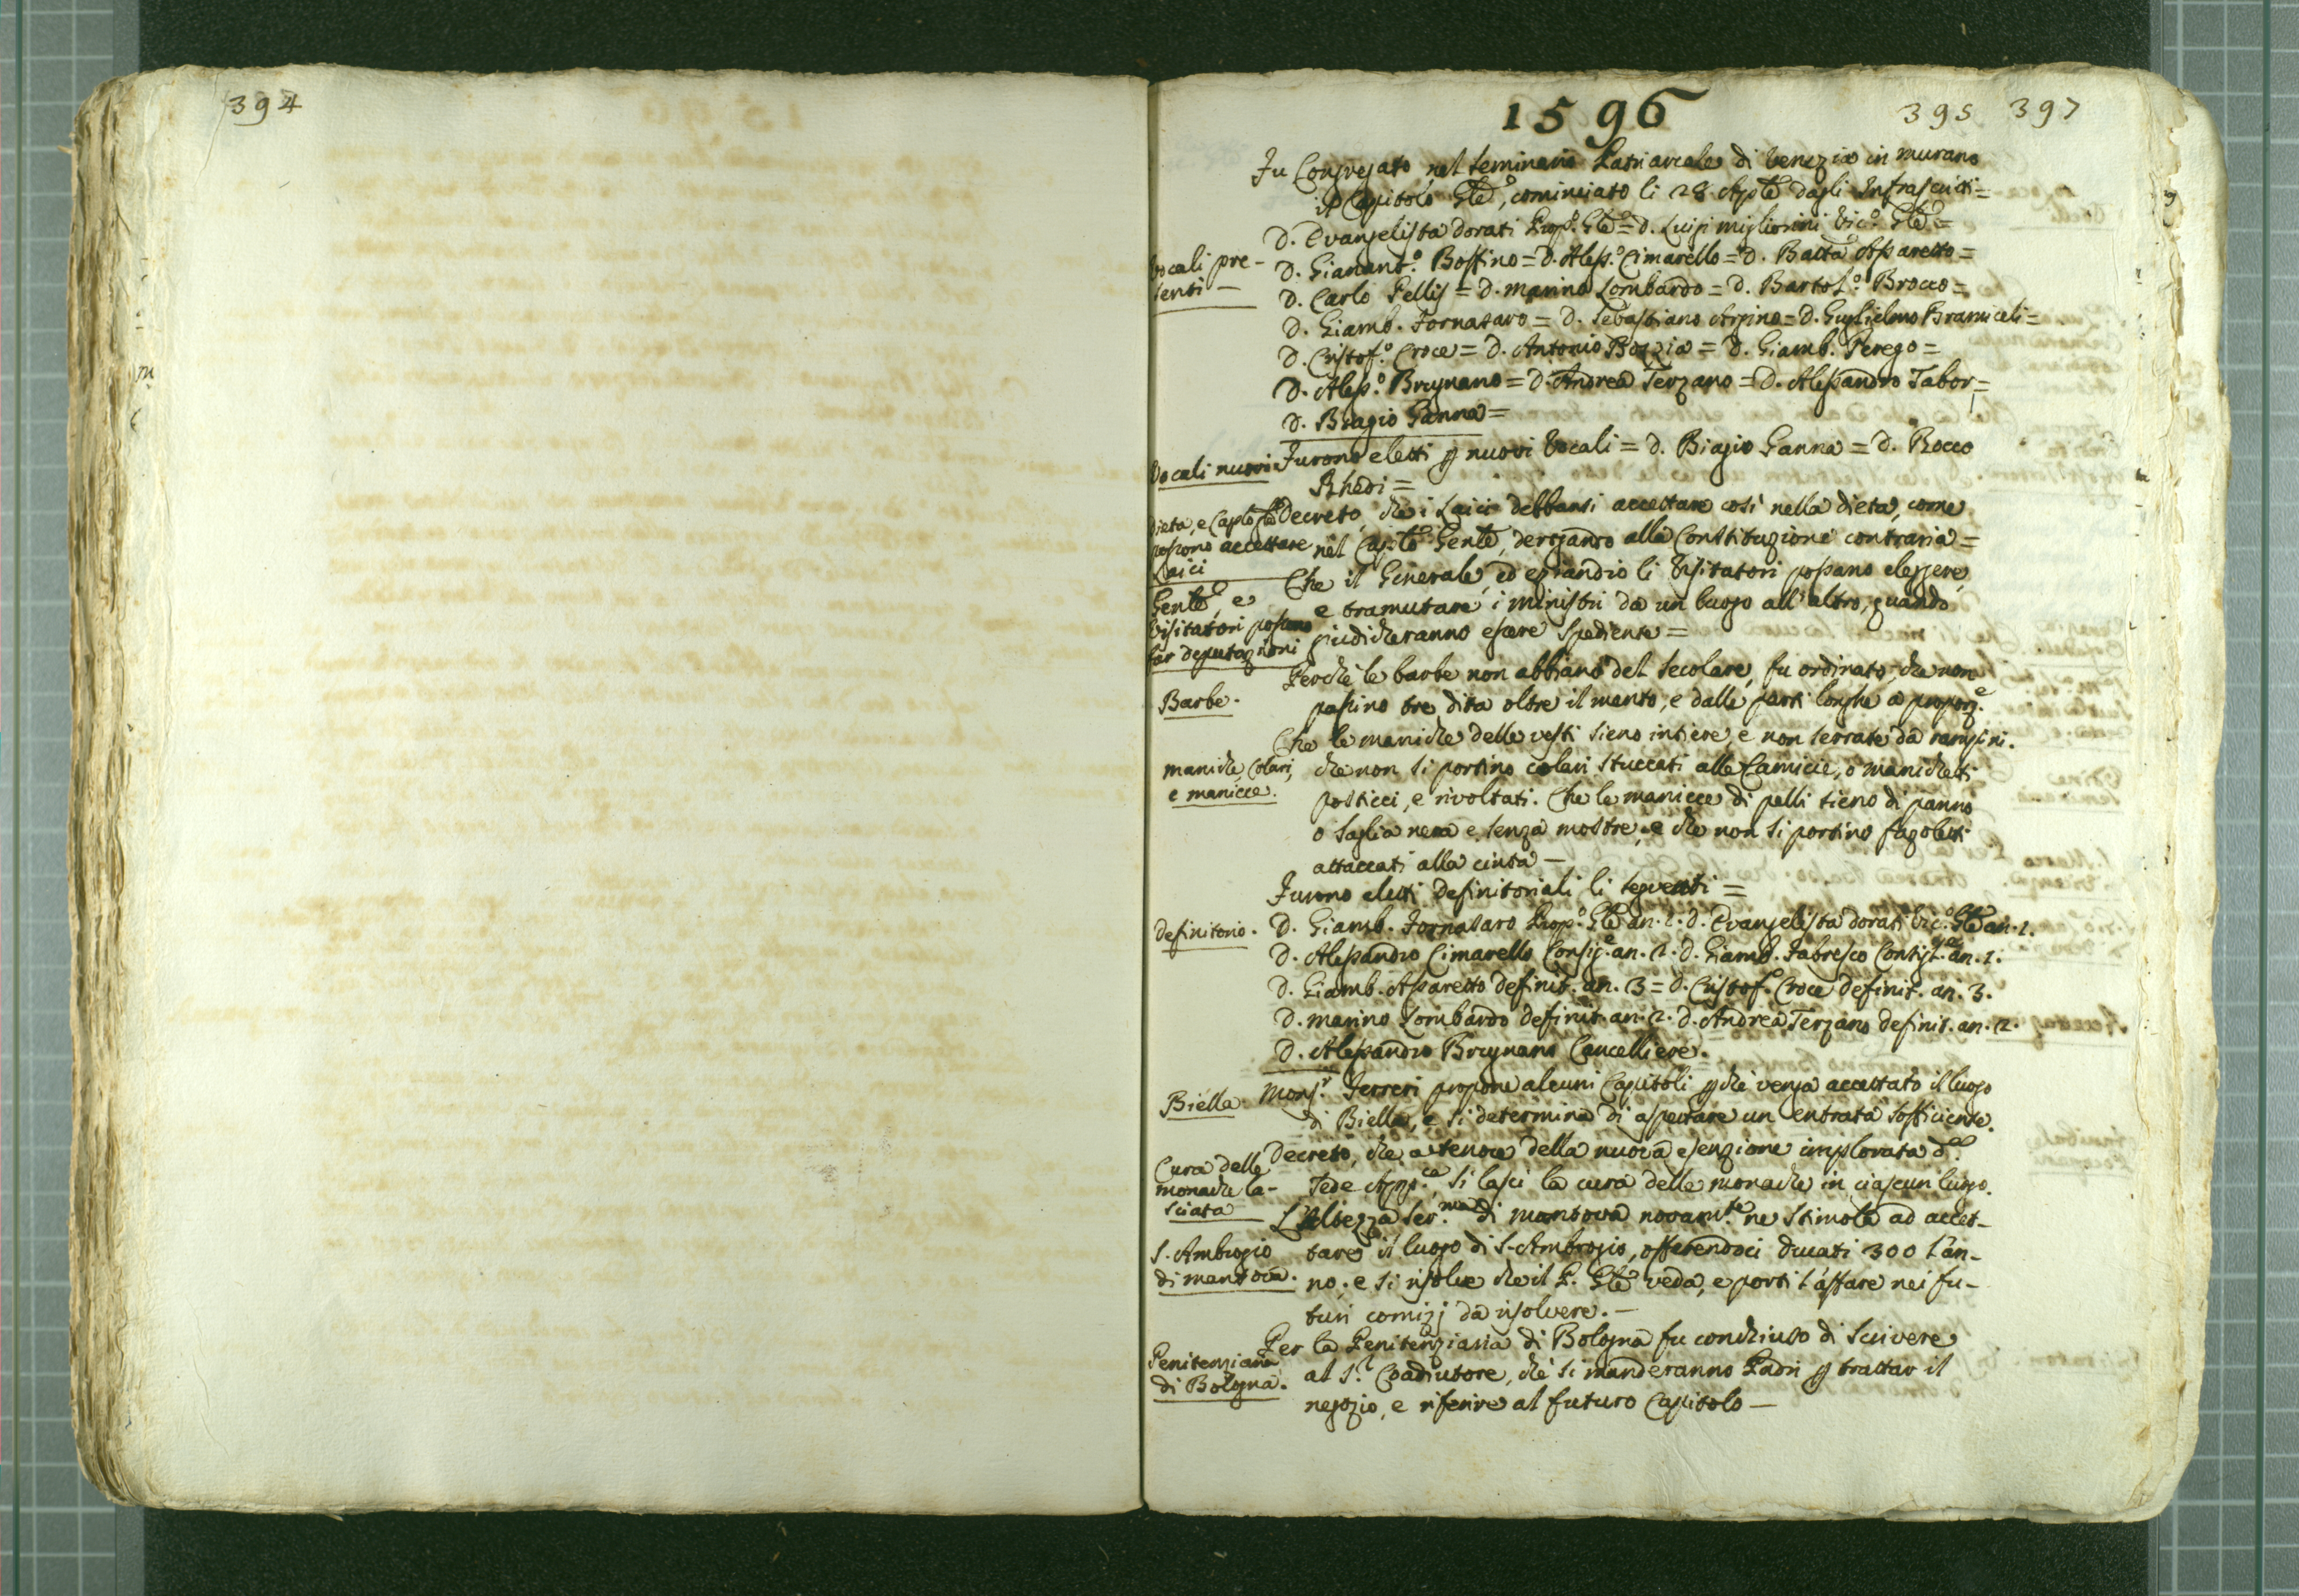 394
1596
395 397
Fu Congregato nel Seminario Patriarcale di Venezia in Murano
il Capitolo Gle, cominciato li 28 Aple dagli Infrascritti =
D. Evangelista Dorati Prop.o Gle = D. Luigi Migliorini Vic.o Gle =
Vocali pre-
senti —
D. Gianant.o Bossino = D. Aless.o Cimarello = D. Batta Assaretto =
D. Carlo Pellis = D. Marino Lombardo = D. Bartol.o Brocco =
D. Giamb. Fornasaro = D. Sebastiano Arpino = D. Guglielmo Bramiceli =
D. Cristof.o Croce = D. Antonio Bozzia = D. Giamb. Perego =
D. Aless.o Brugnano = D. Andrea Terzano = D. Alessandro Tabor =
D. Biagio Ganna =
Vocali nuovi
Furono eletti p nuovi Vocali = D. Biagio Ganna = D. Rocco
Rhedi =
Dieta, e Caplo Gle
possono accettare
Laici
Decreto, che i Laici debbansi accettare così nella dieta, come
nel Cap.lo Genle, derogando alla Constituzione contraria =
Genle, e
Visitatori possono
far deputazioni
Che il Generale, ed eziandio li Visitatori possano eleggere,
e tramutare i ministri da un luogo all'altro, quando
giudicheranno essere spediente =
Barbe.
Perchè le barbe non abbiano del secolare, fu ordinato, che non
passino tre dita oltre il mento, e dalle parti longhe a proporz.e
Che le maniche delle vesti sieno intiere, e non serrate da rampini.
maniche, Colari,
e manicce.
che non si portino colari stuccati alle Camicie, o manichetti
posticci, e rivoltati. Che le manicce di pelli sieno di panno
o saglia nera e senza mostre, e che non si portino fazoletti
attaccati alla cinta —
Furono eletti Definitoriali li seguenti =
Definitorio.
D. Giamb. Fornasaro Prop.o Gle an. 2. D. Evangelista Dorati Vic.o Gle an. 1.
D. Alessandro Cimarello Consig.e an. 2. D. Giamb. Fabresco Consigl.e an. 1.
D. Giamb. Assaretto definit. an. 3 = D. Cristof.o Croce definit. an. 3.
D. Marino Lombardo definit. an. 2. D. Andrea Terzano definit. an. 2.
D. Alessandro Brugnano Cancelliere.
Biella.
Mons.r Ferreri propone alcuni Capitoli p che venga accettato il luogo
di Biella, e si determina di aspettare un entrata sofficiente.
Cura delle
monache la-
sciata
Decreto, che a tenore della nuova esenzione implorata d.
Sede App.ca, si lasci la cura delle monache in ciascun luogo.
S. Ambrogio
di mantova.
L'Altezza Ser.ma di Mantova novam.te ne stimola ad accet-
tare il luogo di S. Ambrogio, offerendoci ducati 300 l'an-
no; e si risolve che il P. Gle veda, e porti l'affare nei fu-
turi comizj da risolvere. —
Penitenziaria
di Bologna.
Per la Penitenziaria di Bologna fu conchiuso di scrivere
al S.r Coadiutore, che si manderanno Padri p trattar il
negozio, e riferire al futuro Capitolo —